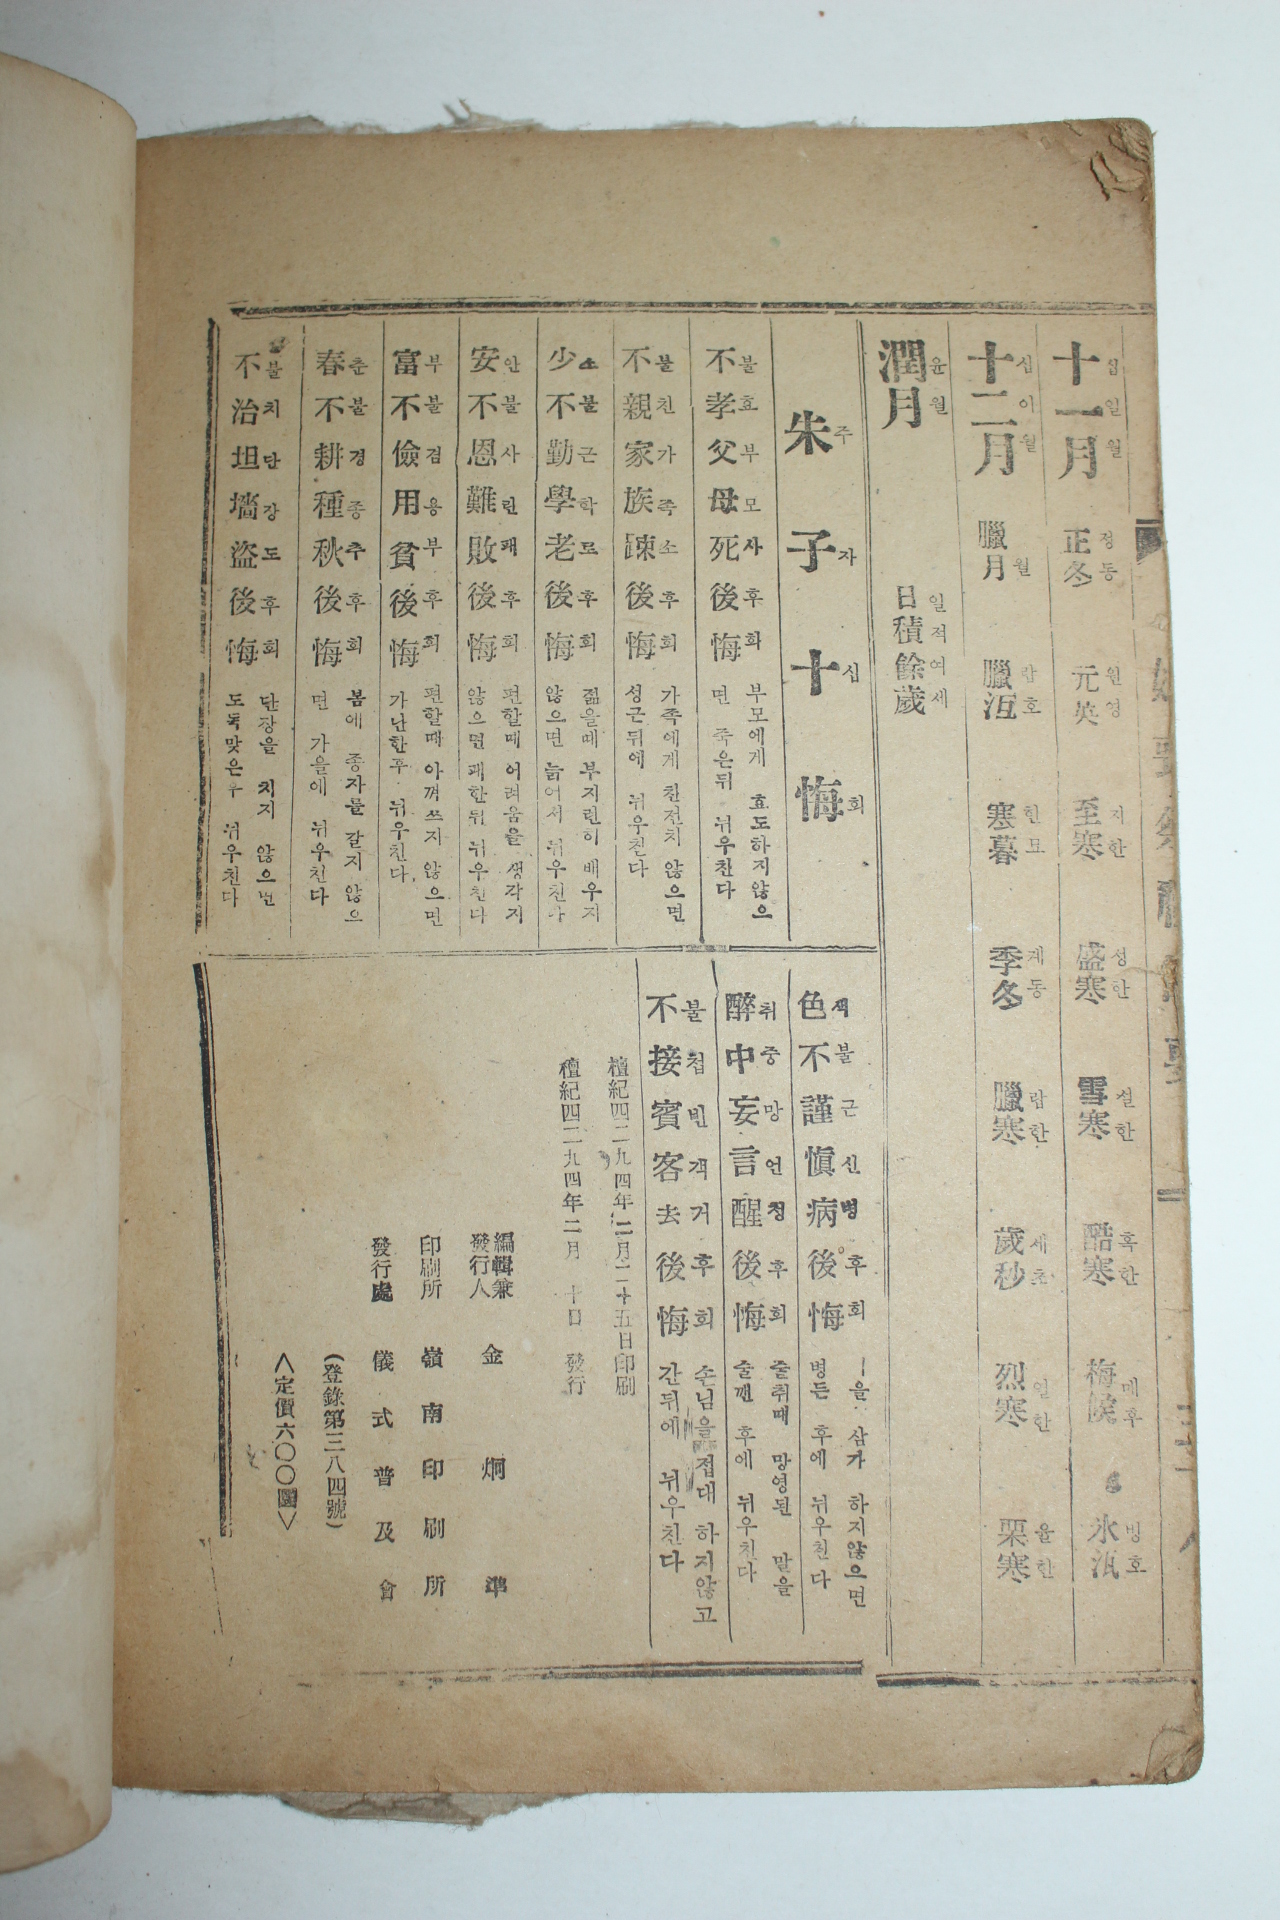 十一月 십일월 正冬 정동 元英 원영 至寒 지한 盛寒 성한 雪寒 설한 酷寒 혹한 梅候 매후 氷沍 빙호
十二月 십이월 臘月 월 臘沍 람호 寒暮 한모 季冬 계동 臘寒 람한 歲秒 세초 烈寒 열한 栗寒 율한
潤月 윤월 日積餘歲 일적여세
朱子十悔 주자십회
不孝父母死後悔 불효부모사후회 부모에게 효도하지않으면 죽은뒤 뉘우친다
不親家族踈後悔 불친가족소후회 가족에게 친전치 않으면 성근뒤에 뉘우친다
少不勤學老後悔 소불근학로후회 젊을때 부지런히 배우지 않으면 늙어서 뉘우친다
安不思難敗後悔 안불사란패후회 편할때 어려움을 생각지 않으면 패한뒤 뉘우친다
富不儉用貧後悔 부불검용부후회 편할때 아껴쓰지 않으면 가난한후 뉘우친다
春不耕種秋後悔 춘불경종추후회 봄에 종자를 갈지 않으면 가을에 뉘우친다
不治坦墻盜後悔 불치단장도후회 단장을 치지 않으면 도독맞은후 뉘우친다
色不謹愼病後悔 색불근신병후회 을 삼가 하지않으면 병든 후에 뉘우친다
醉中妄言醒後悔 취중망언정후회 술취때 망영된 말을 술깬 후에 뉘우친다
不接賓客去後悔 불접빈객거후회 손님을 접대 하지않고 간뒤에 뉘우친다
檀紀四二九四年二月二十五日印刷
檀紀四二九四年二月 十日 發行
編輯兼發行人 金炯準
印刷所 嶺南印刷所
發行處 儀式普及會
(登錄第三八四號)
<定價六〇〇圜>